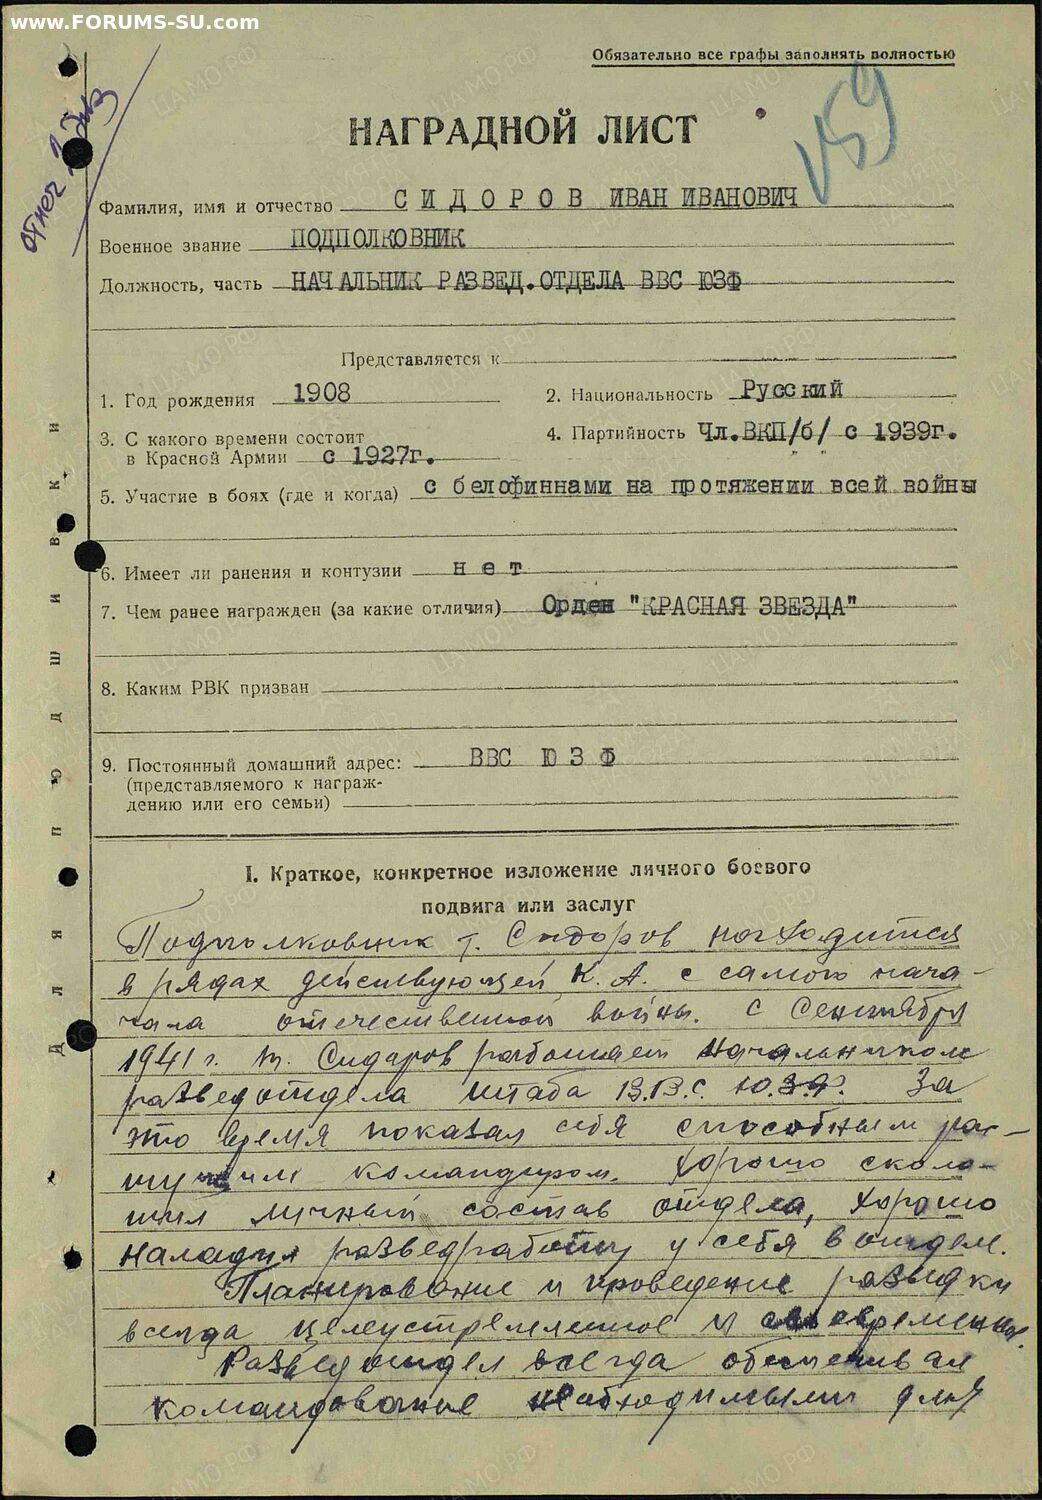 www.FORUMS-SU.com
Обязательно все графы заполнять полностью
159
НАГРАДНОЙ ЛИСТ
Фамилия, имя и отчество СИДОРОВ ИВАН ИВАНОВИЧ
Военное звание ПОДПОЛКОВНИК
Должность, часть НАЧАЛЬНИК РАЗВЕД.ОТДЕЛА ВВС ЮЗФ
Представляется к
1. Год рождения 1908
2. Национальность Русский
3. С какого времени состоит
в Красной Армии с 1927г.
4. Партийность Чл.ВКП/б/ с 1939г.
5. Участие в боях (где и когда) с белофиннами на протяжении всей войны
6. Имеет ли ранения и контузии нет
7. Чем ранее награжден (за какие отличия) Орден "КРАСНАЯ ЗВЕЗДА"
8. Каким РВК призван
9. Постоянный домашний адрес: ВВС ЮЗФ
(представляемого к награж-
дению или его семьи)
Для подшивки
I. Краткое, конкретное изложение личного боевого
подвига или заслуг
Подполковник т. Сидоров находится
в рядах действующей К. А. с самого нача-
чала отечественной войны. С Сентября
1941 г. т. Сидоров работает Начальником
разведотдела штаба В.В.С. Ю.З.Ф. За
это время показал себя способным рас-
тущим командиром. Хорошо сколо-
тил личный состав отдела, хорошо
наладил разведработу у себя в отделе.
Планирование и проведение разведки
всегда целеустремленное и своевременное.
Разведотдел всегда обеспечивал
командование необходимыми для